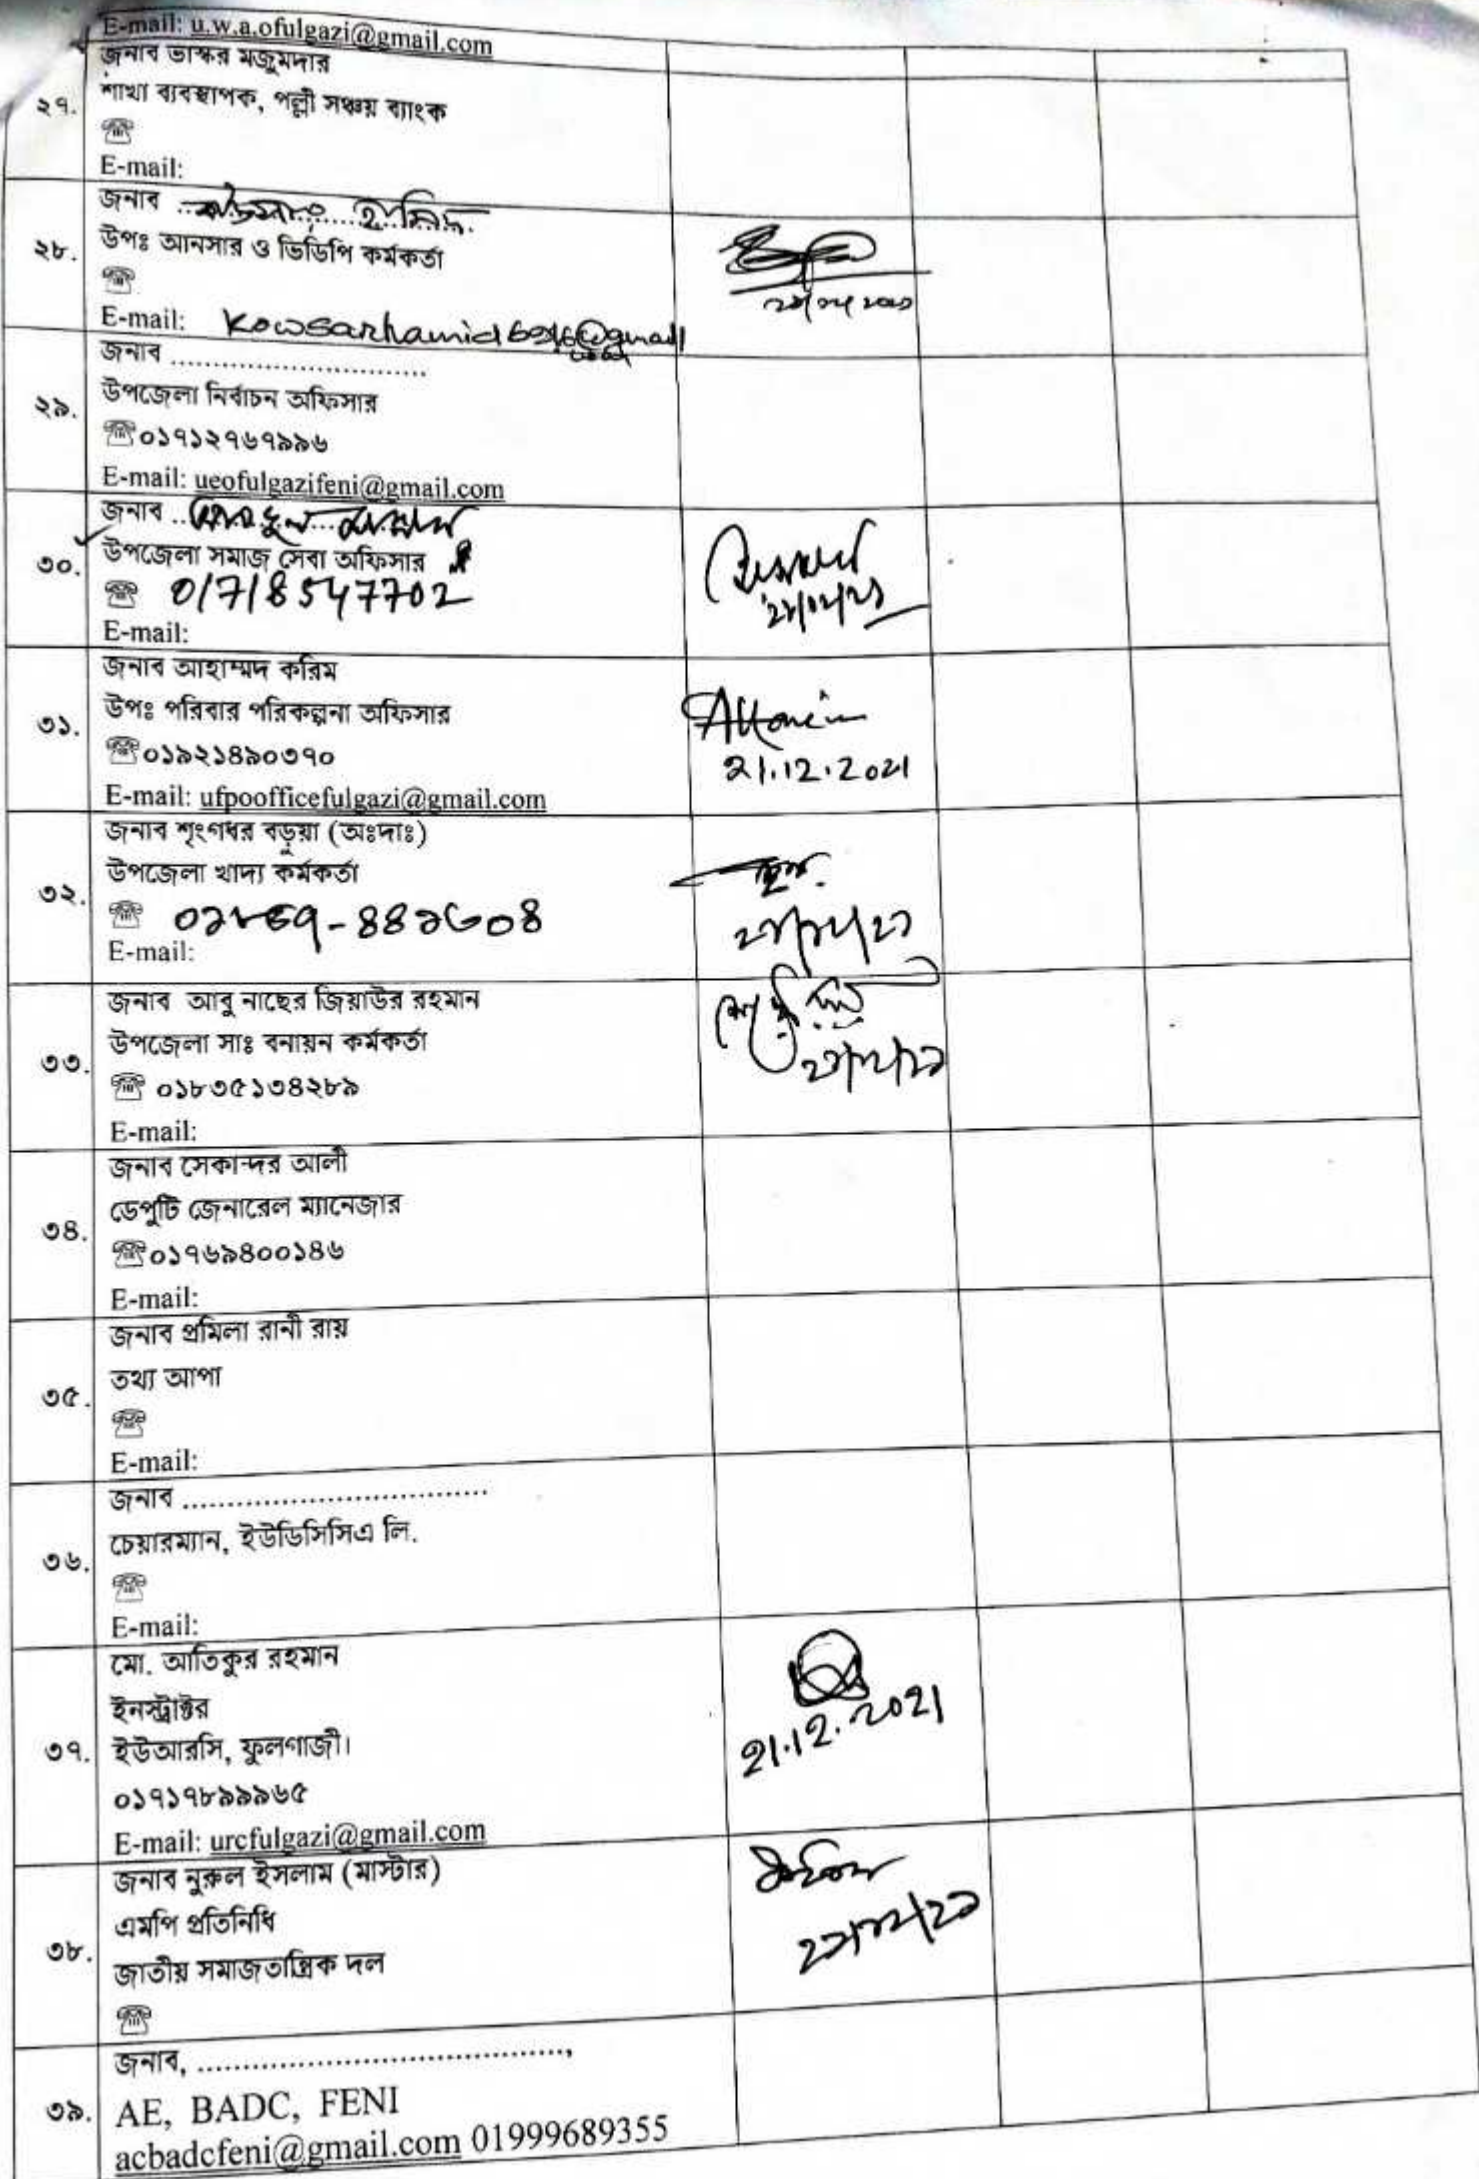 E-mail: u.w.a.ofulgazi@gmail.com
২৭.
জনাব ভাস্কর মজুমদার
শাখা ব্যবস্থাপক, পল্লী সঞ্চয় ব্যাংক
☏
E-mail:
২৮.
জনাব কাউসার হামিদ
উপঃ আনসার ও ভিডিপি কর্মকর্তা
☏
E-mail:
২৯.
জনাব .............................
উপজেলা নির্বাচন অফিসার
☏০১৭১২৭৬৭৯৯৬
E-mail: ueofulgazifeni@gmail.com
৩০.
জনাব
উপজেলা সমাজ সেবা অফিসার
☏ 01718547702
E-mail:
৩১.
জনাব আহাম্মদ করিম
উপঃ পরিবার পরিকল্পনা অফিসার
☏০১৯২১৪৯০৩৭০
E-mail: ufpoofficefulgazi@gmail.com
21.12.2021
৩২.
জনাব শৃংগধর বড়ুয়া (অঃদাঃ)
উপজেলা খাদ্য কর্মকর্তা
☏
E-mail:
৩৩.
জনাব আবু নাছের জিয়াউর রহমান
উপজেলা সাঃ বনায়ন কর্মকর্তা
☏ ০১৮৩৫১৩৪২৮৯
E-mail:
৩৪.
জনাব সেকান্দর আলী
ডেপুটি জেনারেল ম্যানেজার
☏০১৭৬৯৪০০১৪৬
E-mail:
৩৫.
জনাব প্রমিলা রানী রায়
তথ্য আপা
☏
E-mail:
৩৬.
জনাব ...................................
চেয়ারম্যান, ইউডিসিসিএ লি.
☏
E-mail:
৩৭.
মো. আতিকুর রহমান
ইনস্ট্রাক্টর
ইউআরসি, ফুলগাজী।
০১৭১৭৮৯৯৯৬৫
E-mail: urcfulgazi@gmail.com
21.12.2021
৩৮.
জনাব নুরুল ইসলাম (মাস্টার)
এমপি প্রতিনিধি
জাতীয় সমাজতান্ত্রিক দল
☏
২১/১২/২১
৩৯.
জনাব, .........................................,
AE, BADC, FENI
acbadcfeni@gmail.com 01999689355